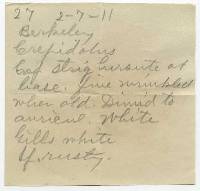 27 2-7-11
Berkeley
Crepidotus
Cap strig hirsute at
base. fine wrinkled
when old. Dimid to
auricul. White
Gills white
Sp. rusty.